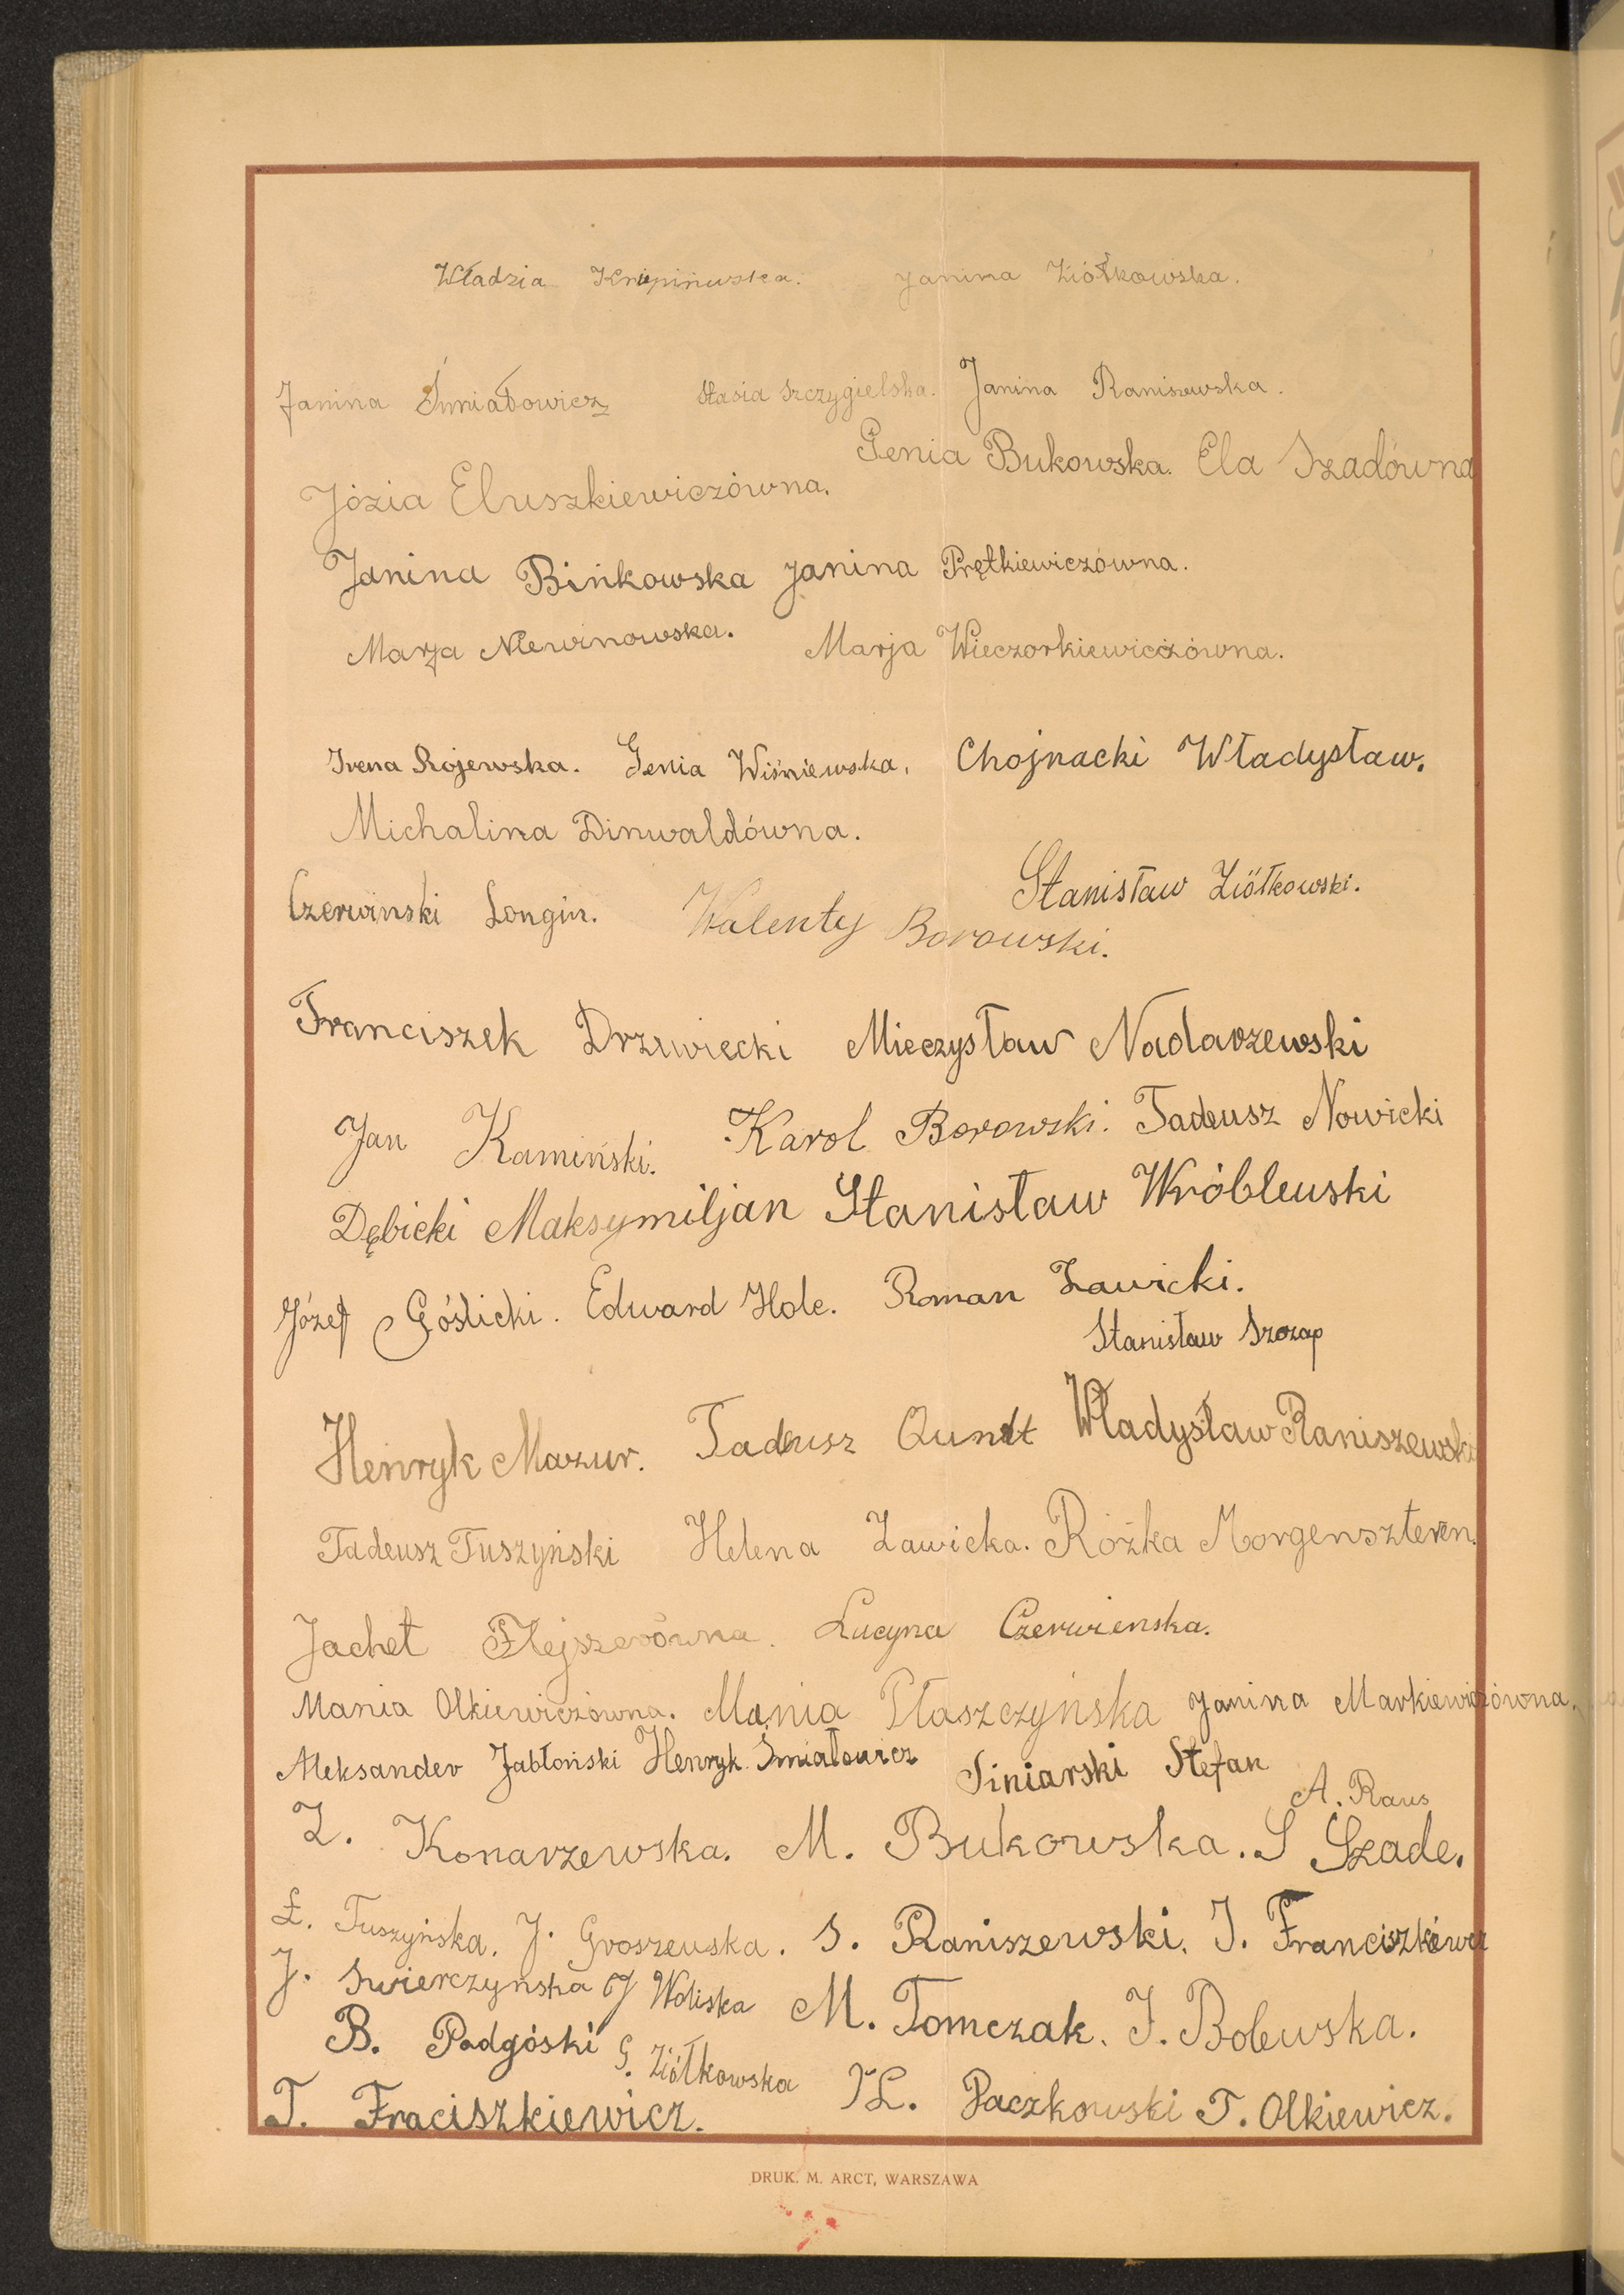 Władzia Janina Ziółkowska.
Janina Śmiałowicz Stasia Szczygielska. Janina Raniszewska.
Genia Bukowska. Ela Szadówna
Józia Eluszkiewiczówna.
Janina Bińkowska Janina Prętkiewiczówna.
Marja Niewinowska. Marja Wieczorkiewiczówna.
Irena Rojewska. Genia Wiśniewska. Chojnacki Władysław.
Michalina Dinwaldówna.
Stanisław Ziółkowski.
Czerwinski Longin. Walenty Borowski.
Franciszek Drzewiecki Mieczysław Nadarzewski
Jan Kamiński. Karol Borowski. Tadeusz Nowicki
Dębicki Maksymiljan Stanisław Wróblewski
Józef Góślicki. Edward Hole. Roman Zawicki.
Stanisław
Henryk Mazur. Tadeusz Qundt Władysław Raniszewski
Tadeusz Tuszyński Helena Zawicka. Rózka Morgenszteren.
Jachet Flejszerówna. Lucyna Czerwienska.
Mania Olkiewiczówna. Mania Płaszczyńska Janina Markiewiczówna.
Aleksander Jabłoński Henryk Śmiałowicz Siniarski Stefan
A. Raus
Z. Konarzewska. M. Bukowska. S Szade.
Ł. Tuszyńska. J. Groszewska. S. Raniszewski. J.
J. Swierczyńska J Wolska M. Tomczak. J. Bolewska.
B. Podgóski G. Ziółkowska K. Paczkowski T. Olkiewicz.
T. Fraciszkiewicz.
DRUK. M. ARCT, WARSZAWA